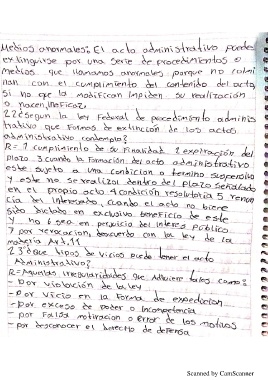 Medios anormales: El acto administrativo puede
extinguirse por una serie de procedimientos o
medios que llamamos anormales porque no culmi
nan con el cumplimiento del contenido del acto,
si no que la modifican impiden su realización
o hacen ineficaz
22 ¿Segun la ley Federal de procedimiento adminis
trativo que formas de extinción de los actos
administrativo contempla?
R= 1 cumplimiento de su finalidad 2 expiración del
plazo. 3 cuando la formación del acto administrativo
este sujeto a una condicion o termino suspensivo
y este no se realiza dentro del plazo señalado
en el propio acto 4 condición resolutoria 5 renun
cia del interesado, cuando el acto no biene
sido dictado en exclusivo beneficio de este
y no sea en perjuicio del interés público
y por revocación, deacuerdo con la ley de la
materia Art. 11
23 ¿Que tipos de vicios puede tener el acto
Administrativo?
R= Aquellas irregularidades que Adquiere tales como:
- por violación de la ley
- por vicio en la forma de expedicion
- por exceso de poder o incompetencia
- por falsa motivacion o error de los motivos
- por desconocer el derecho de defensa
Scanned by CamScanner